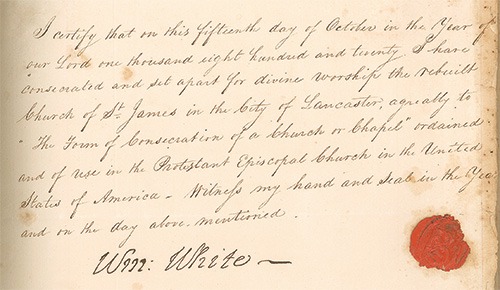 I certify that on this fifteenth day of October in the Year of
our Lord one thousand eight hundred and twenty I have
consecrated and set apart for divine worship the rebuilt
Church of St. James in the City of Lancaster, agreally to
"The Form of Consecration of a Church or Chapel" ordained
and of use in the Protestant Episcopal Church in the United
States of America - Witness my hand and seal in the Yea
and on the day above mentioned.
Wm: White —